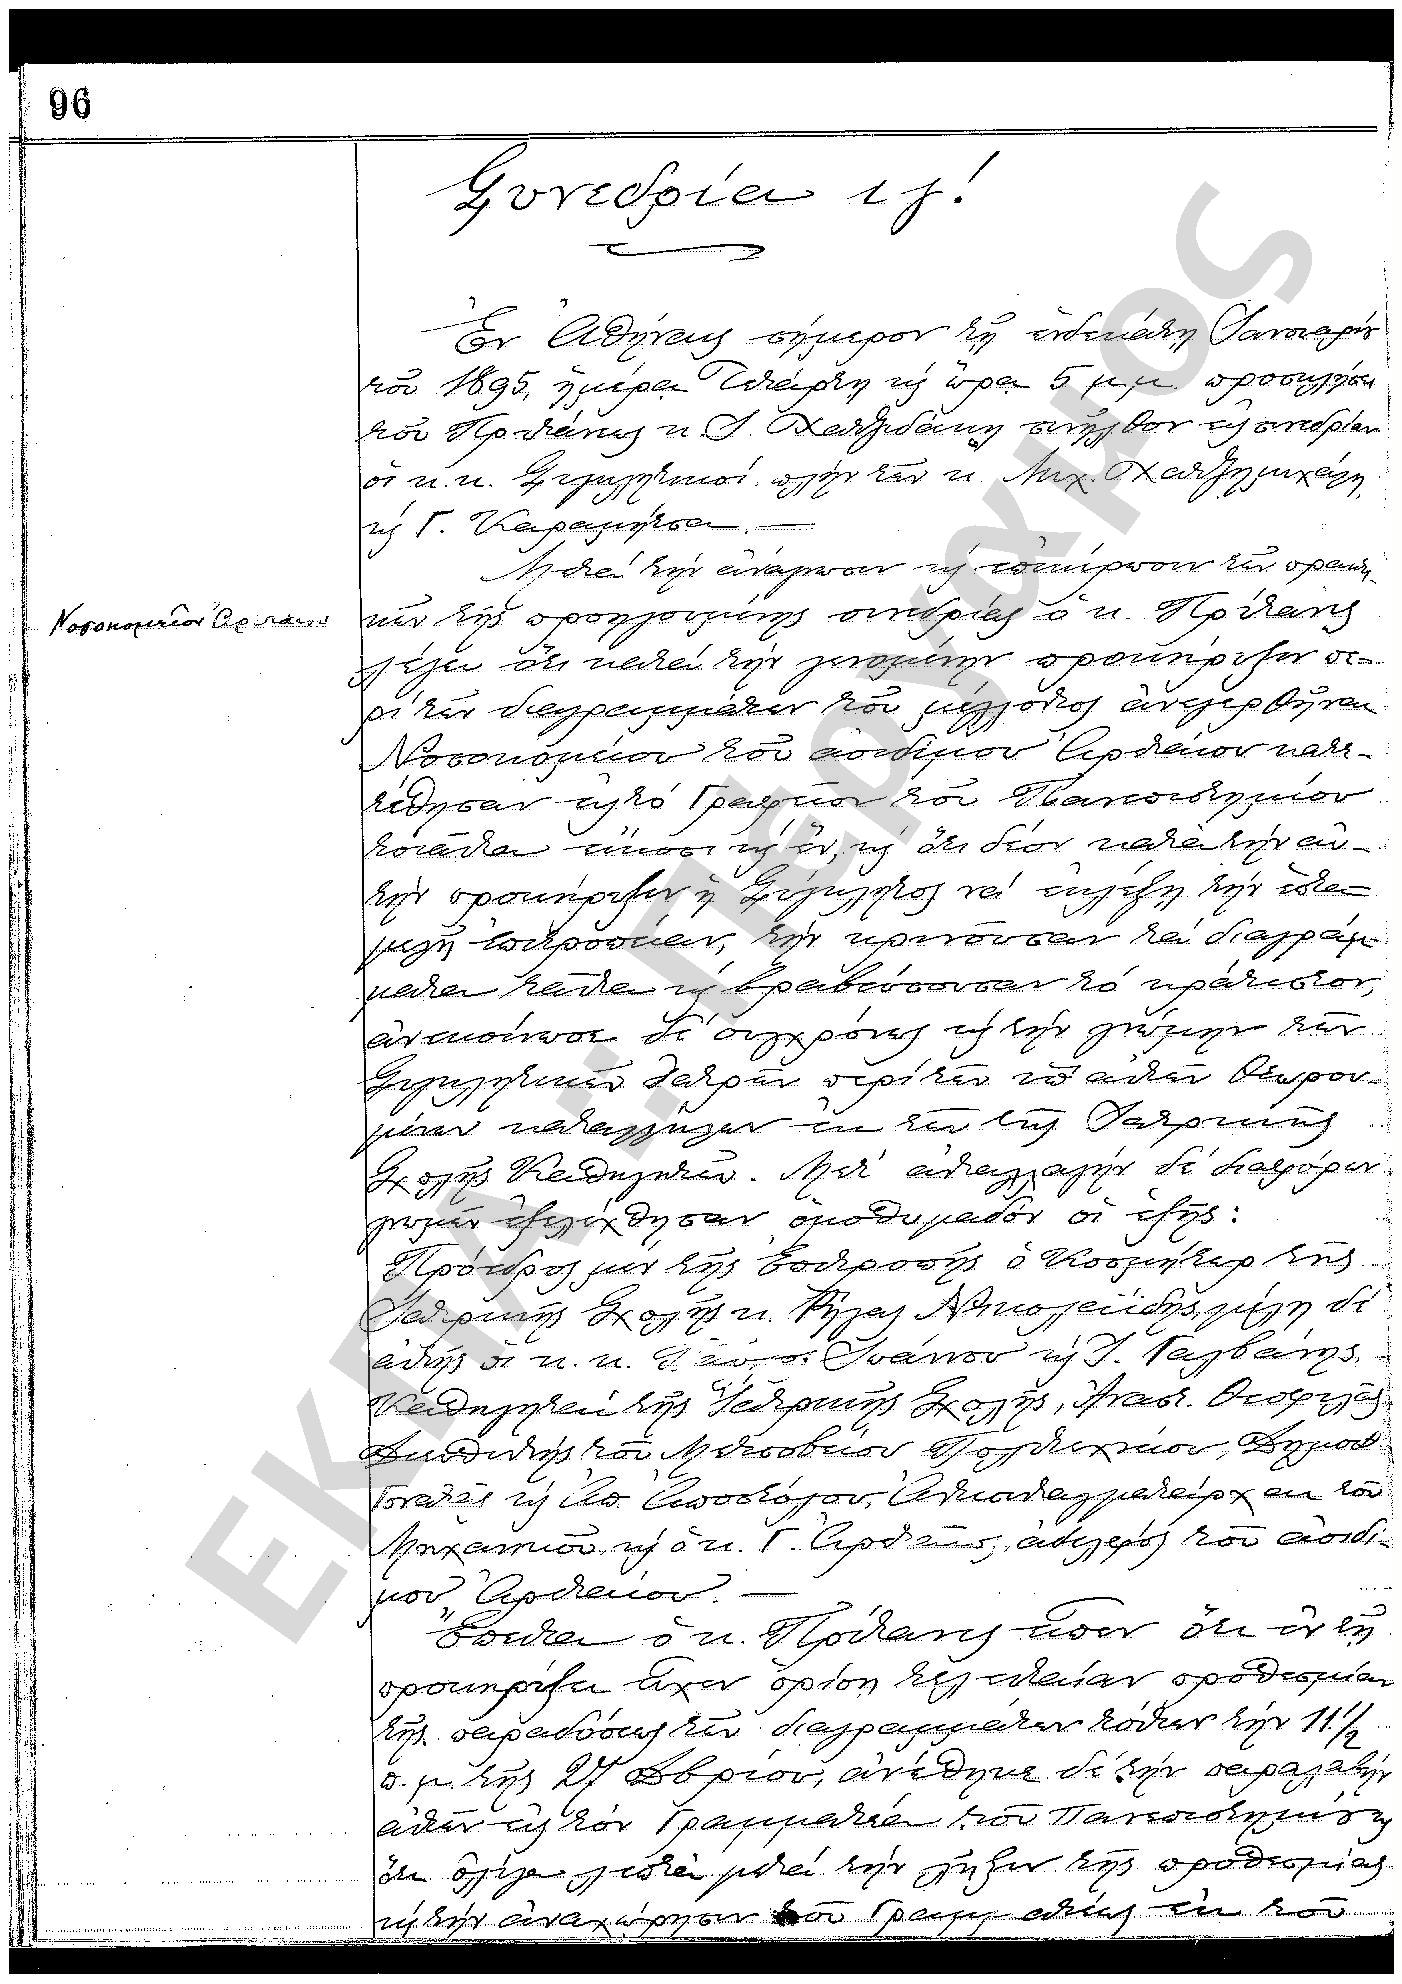 96
Συνεδρία ιγ!
Ἐν Ἀθήναις σήμερον τῇ ἑνδεκάτῃ Ἰανουαρίου
τοῦ 1895, ἡμέρα Τετάρτῃ καὶ ὥρᾳ 5 μ.μ. προσκλήσει
τοῦ Πρυτάνεως κ. Ι. Χατζιδάκη συνῆλθον εἰς συνεδρίαν
οἱ κ.κ. Συγκλητικοί πλὴν τῶν κ. Μιχ. Χατζημιχάλη
καὶ Γ. Καραμήτσα. —
Μετὰ τὴν ἀνάγνωσιν καὶ ἐπικύρωσιν τῶν πρακτι-
Νοσοκομεῖον Ἀρεταίου
κῶν τῆς προηγουμένης συνεδρίας ὁ κ. Πρύτανις
λέγει ὅτι κατὰ τὴν γενομένην προκήρυξιν πε-
ρὶ τῶν διαγραμμάτων τοῦ μέλλοντος ἀνεγερθῆναι
Νοσοκομείου τοῦ ἀοιδίμου Ἀρεταίου κατε-
τέθησαν εἰς τὸ Γραφεῖον τοῦ Πανεπιστημίου
τοιαῦτα εἴκοσι καὶ ἕν, καὶ ὅτι δέον κατὰ τὴν αὐ-
τὴν προκήρυξιν ἡ Σύγκλητος νὰ ἐκλέξῃ τὴν ἑπτα-
μελῆ ἐπιτροπείαν, τὴν κρινοῦσαν τὰ διαγράμ-
ματα ταῦτα καὶ βραβεύσουσαν τὸ κράτιστον,
ἀνεκοίνωσε δὲ συγχρόνως καὶ τὴν γνώμην τῶν
Συγκλητικῶν Ἰατρῶν περὶ τῶν ὑπ' αὐτῶν θεωρου-
μένων καταλλήλων ἐκ τῶν τῆς Ἰατρικῆς
Σχολῆς Καθηγητῶν. Μετ' ἀνταλλαγὴν δὲ διαφόρων
γνωμῶν ἐξελέχθησαν ὁμοθυμαδὸν οἱ ἑξῆς:
Πρόεδρος μὲν τῆς Ἐπιτροπῆς ὁ Κοσμήτωρ τῆς
Ἰατρικῆς Σχολῆς κ. Ῥήγας Νικολαΐδης, μέλη δὲ
αὐτῆς οἱ κ. κ. Ἰωάννου καὶ Ι. Γαλβάνης
Καθηγηταὶ τῆς Ἰατρικῆς Σχολῆς, Ἀναστ. Θεοφιλᾶς
Διευθυντὴς τοῦ Μετσοβείου Πολυτεχνείου,
καὶ Ἀπ. Ἀποστόλου, Ἀντισυνταγματάρχαι τοῦ
Μηχανικοῦ, καὶ ὁ κ. Γ. Ἀρεταῖος, ἀδελφὸς τοῦ ἀοιδί-
μου Ἀρεταίου. —
Ἔπειτα ὁ κ. Πρύτανις εἶπεν ὅτι ἐν τῇ
προκηρύξει εἶχεν ὁρίσῃ τελευταίαν προθεσμίαν
τῆς παραδόσεως τῶν διαγραμμάτων τούτων τὴν 11 1/2
π.μ. τῆς 24 Δβρίου, ἀνέθηκε δὲ τὴν παραλαβὴν
αὐτῶν εἰς τὸν Γραμματέα τοῦ Πανεπιστημίου καὶ
ὅτι ὀλίγα λεπτὰ μετὰ τὴν λῆξιν τῆς προθεσμίας
καὶ τὴν ἀναχώρησιν τοῦ Γραμματέως ἐκ τοῦ
ΕΚΠΑ - Πέργαμος